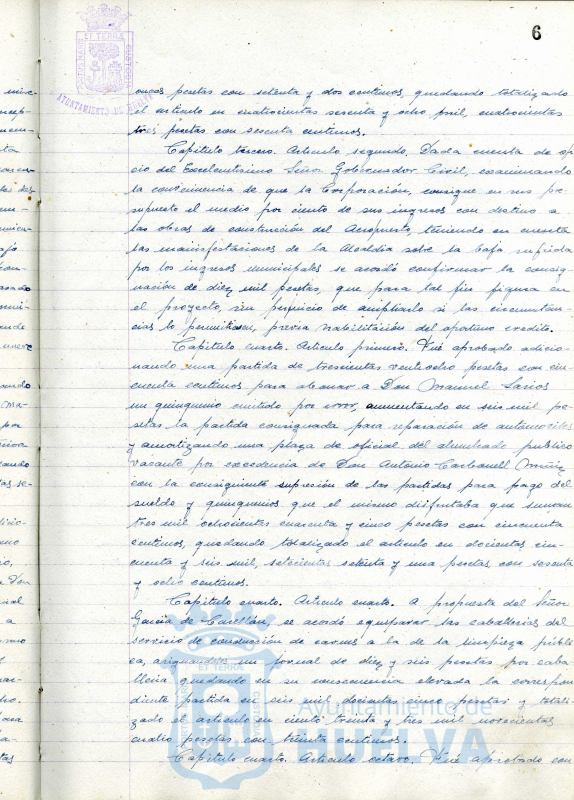 6
EXCMO. AYUNTAMIENTO DE HUELVA
oncas pesetas con setenta y dos centimos, quedando totalizado
el articulo en cuatrocientas sesenta y ocho mil, cuatrocientas
tres pesetas con sesenta centimos.
Capitulo tercero. Articulo segundo. Dada cuenta de ofi
cio del Excelentisimo Señor Gobernador Civil, examinando
la conveniencia de que la Corporación, consigne en sus pre
supuesto el medio por ciento de sus ingresos con destino a
las obras de construcción del Aeropuerto, teniendo en cuenta
las manifestaciones de la Alcaldia sobre la baja sufrida
por los ingresos municipales se acordó confirmar la consig
nación de diez mil pesetas, que para tal fin figura en
el proyecto, sin perjuicio de ampliarlo si las circunstan
cias lo permitiesen, previa habilitación del oportuno credito.
Capitulo cuarto. Articulo primero. Fué aprobado adicio
nando una partida de trescientas veintiocho pesetas con cin
cuenta centimos para abonar a Don Manuel Larios
un quinquenio omitido por error, aumentando en seis mil pe
setas la partida consignada para reparación de automoviles
y amortizando una plaza de oficial del alumbrado publico
vacante por excedencia de Don Antonio Carbonell Muñiz
con la consiguiente supresión de las partidas para pago del
sueldo y quinquenios que el mismo disfrutaba que suman
tres mil ochocientas cuarenta y cinco pesetas con cincuenta
centimos, quedando totalizado el articulo en docientas cin
cuenta y seis mil, setecientas setenta y una pesetas con sesenta
y ocho centimos.
Capitulo cuarto. Articulo cuarto. A propuesta del Señor
Garcia de Castellón, se acordó equiparar las caballerias del
servicio de conducción de carnes a la de la limpieza públi
ca, asignandoles un jornal de diez y seis pesetas por caba
lleria quedando en su consecuencia elevada la correspon
diente partida en seis mil docientas pesetas y totali
zado el articulo en ciento treinta y tres mil novecientas
cuatro pesetas con treinta centimos.
Capitulo cuarto. Articulo octavo. Fué aprobado con
Ayuntamiento de
HUELVA